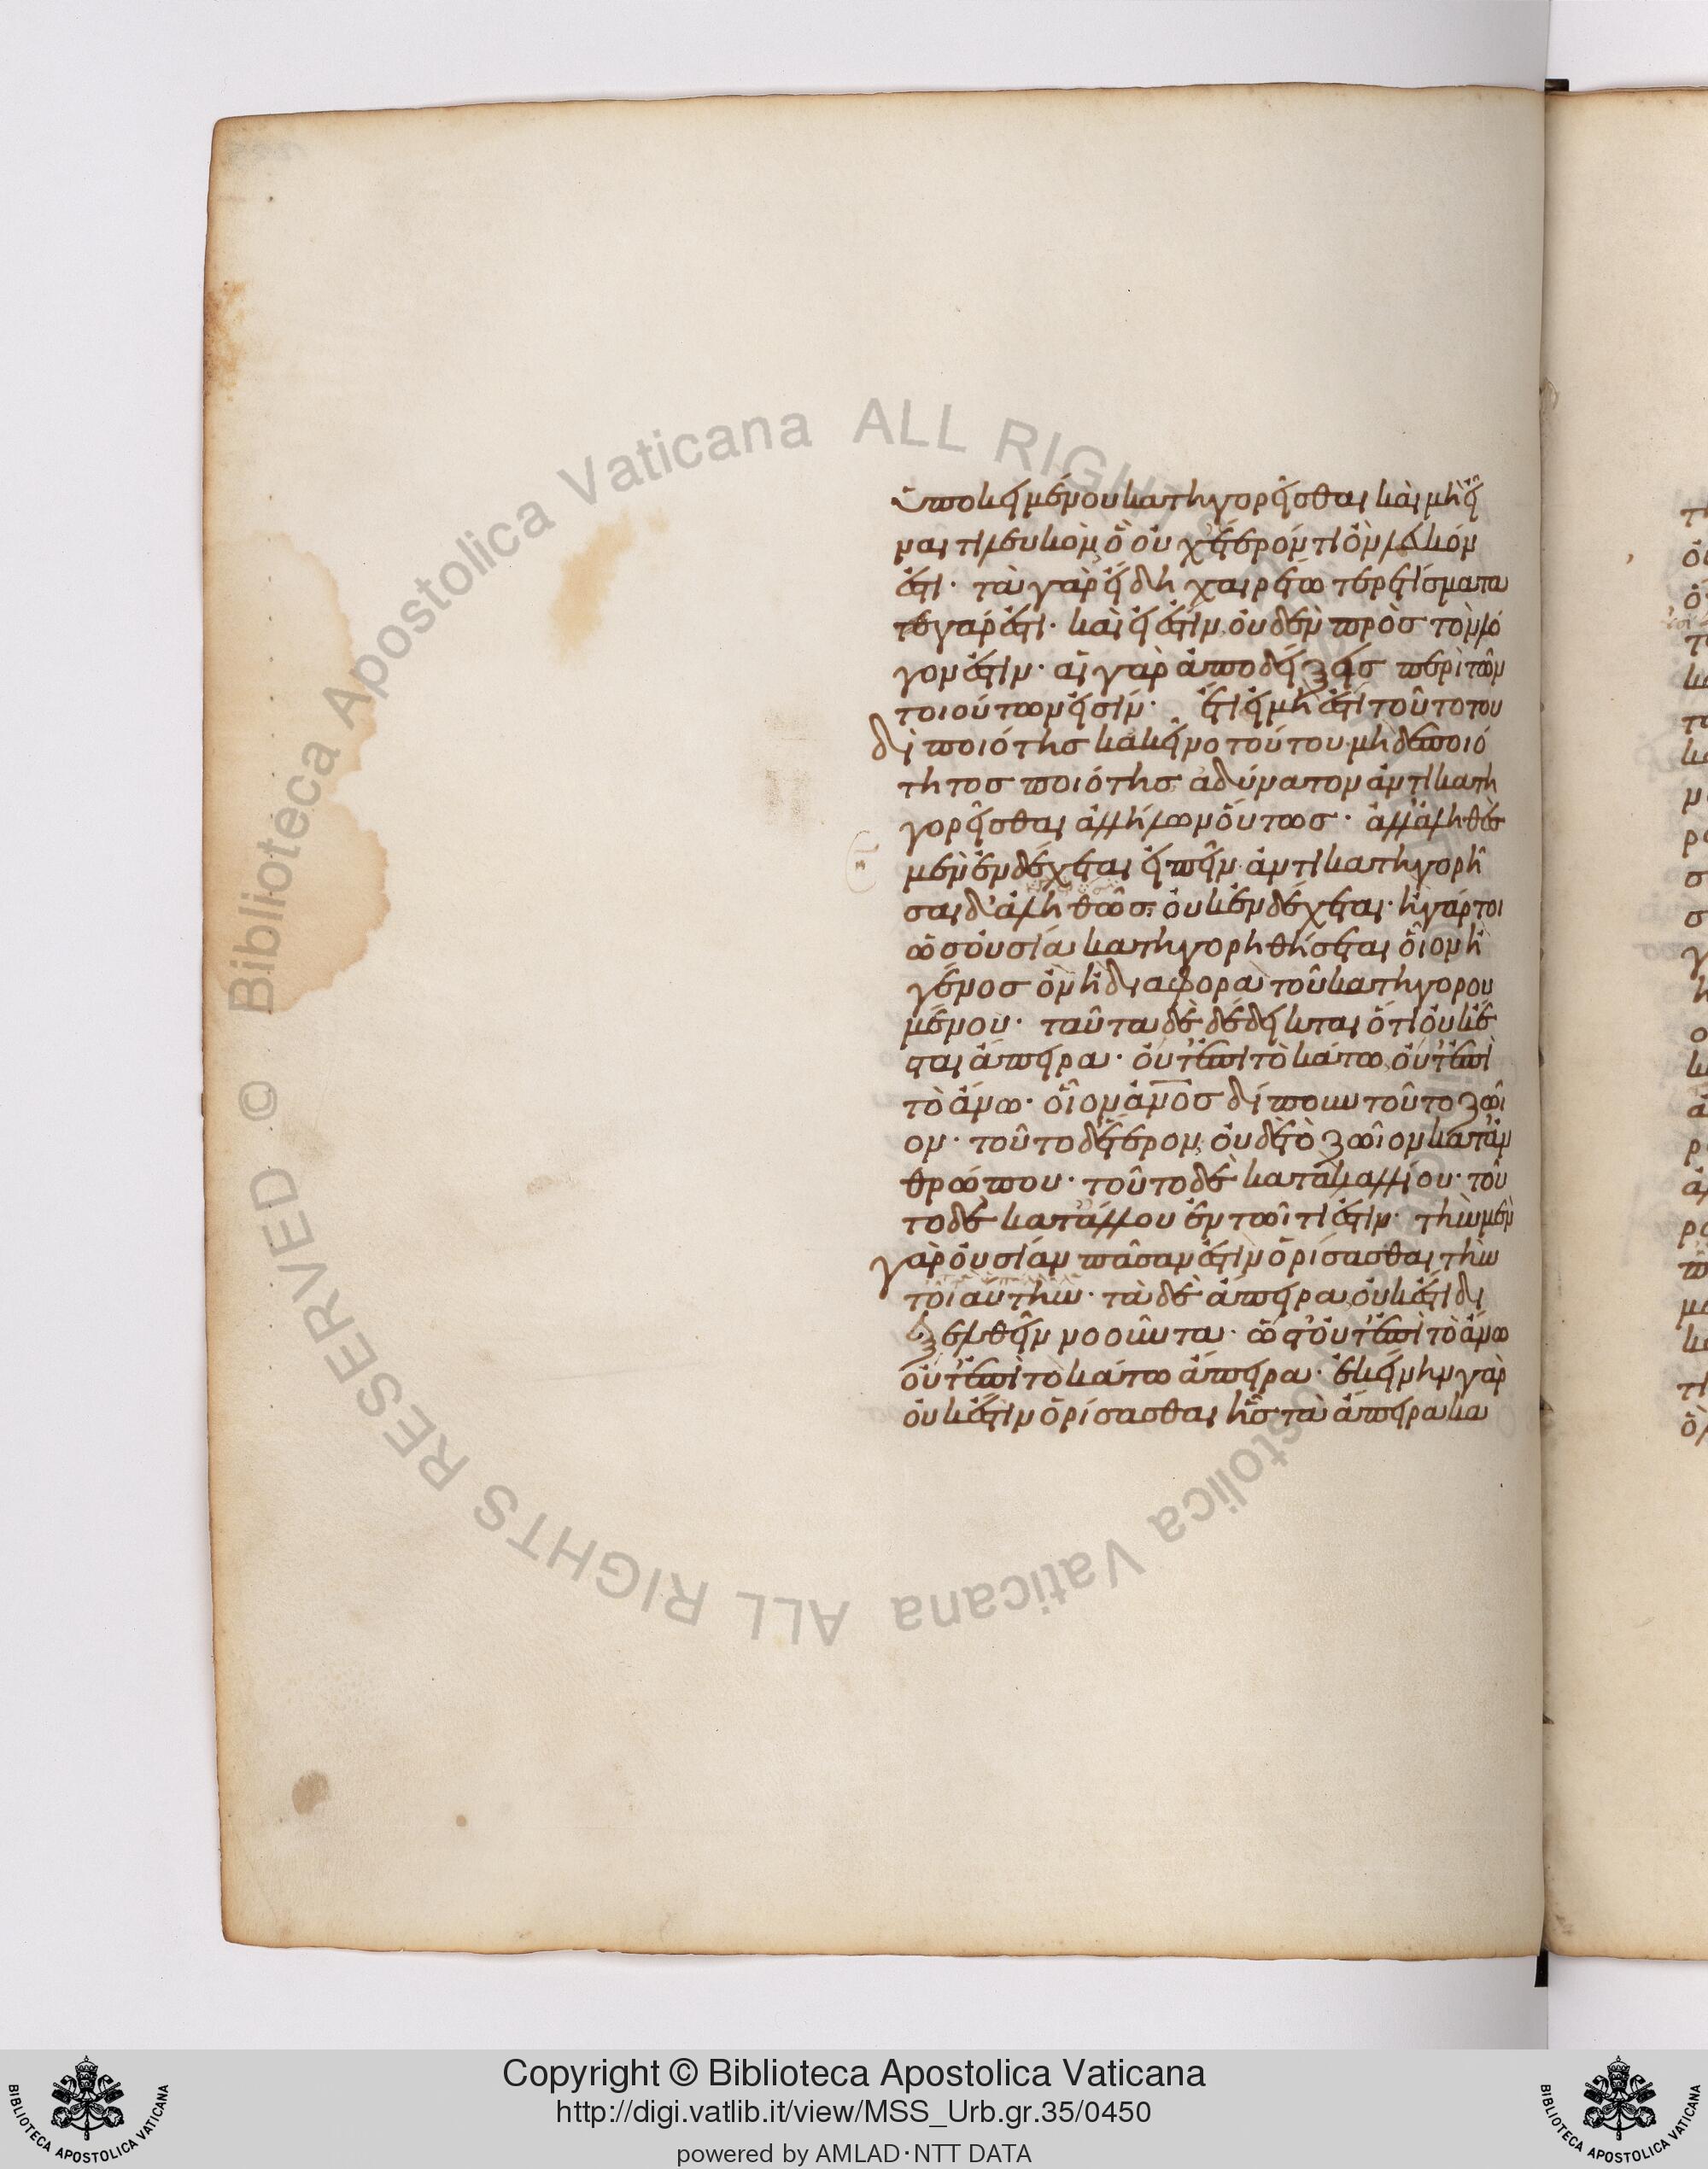 ὑποκειμένου κατηγορεῖσθαι καὶ μὴ εἶ
ναι τι λευκὸν ὃ οὐχ ἕτερόν τι ὂν λευκόν
ἐστι· τὰ γὰρ εἴδη χαιρέτω τερετίσματα
τε γάρ ἐστι· καὶ εἰ ἔστιν, οὐδὲν πρὸς τὸν λό
γον ἐστίν· αἱ γὰρ ἀποδείξεις περὶ τῶν
τοιούτων εἰσίν· ἔτι εἰ μὴ ἐστὶ τοῦτο του
δὶ ποιότης κακεῖνο τούτου· μὴ δὲ ποιό
τητος ποιότης, ἀδύνατον ἀντικατη
γορεῖσθαι ἀλλήλων οὕτως· ἀλλ' ἀληθὲς
μὲν ἐνδέχεται εἰπεῖν· ἀντικατηγορῆ
σαι δ' ἀληθῶς, οὐκ ἐνδέχεται· ἢ γάρ τοι
ὡς οὐσία κατηγορηθήσεται οἷον ἢ
γένος ὂν ἢ διαφορὰ τοῦ κατηγορου
μένου· ταῦτα δὲ δέδεικται ὅτι οὐκ ἔ
σται ἄπειρα· οὔτ' ἐπὶ τὸ κάτω, οὔτ' ἐπὶ
τὸ ἄνω· οἷον ἄν̅ο̅ς δίπουν τοῦτο ζῶι
ον· τοῦτο δ' ἕτερον, οὐδὲ τὸ ζῶιον κατ' ἀν
θρώπου· τοῦτο δὲ κατὰ καλλίου· τοῦ
το δὲ κατ' ἄλλου ἐν τῶι τί ἐστιν· τὴν μὲν
γὰρ οὐσίαν πᾶσαν ἐστὶν ὁρίσασθαι τὴν
τοιαύτην· τὰ δὲ ἄπειρα οὐκ ἔστι δι
εξελθεῖν νοοῦντα· ὥστ' οὔτ' ἐπὶ τὸ ἄνω
οὔτ' ἐπὶ τὸ κάτω ἄπειρα· ἐκείνην γὰρ
οὐκ ἔστιν ὁρίσασθαι ἧς τὰ ἄπειρα κα
Copyright © Biblioteca Apostolica Vaticana
http://digi.vatlib.it/view/MSS_Urb.gr.35/0450
powered by AMLAD·NTT DATA